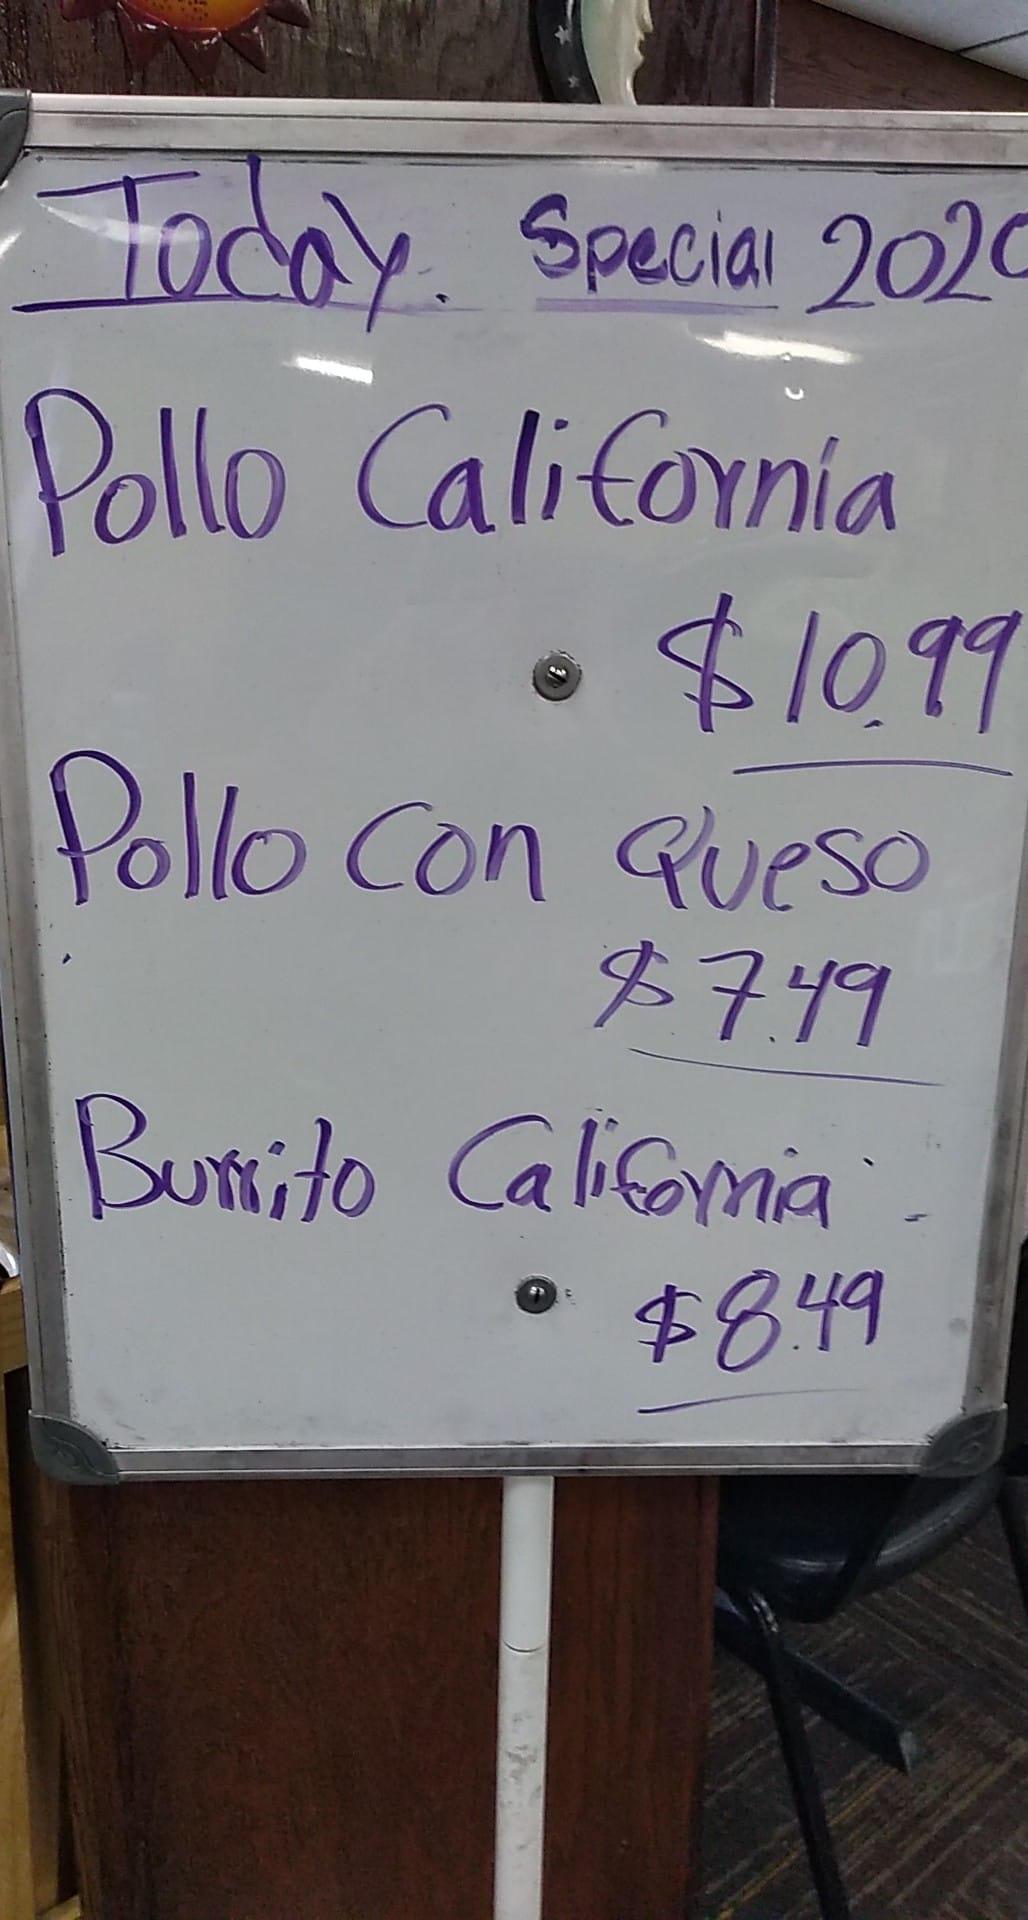 Today. Special 2020
Pollo California
$10.99
Pollo con Queso
$7.49
Burrito California
$8.49